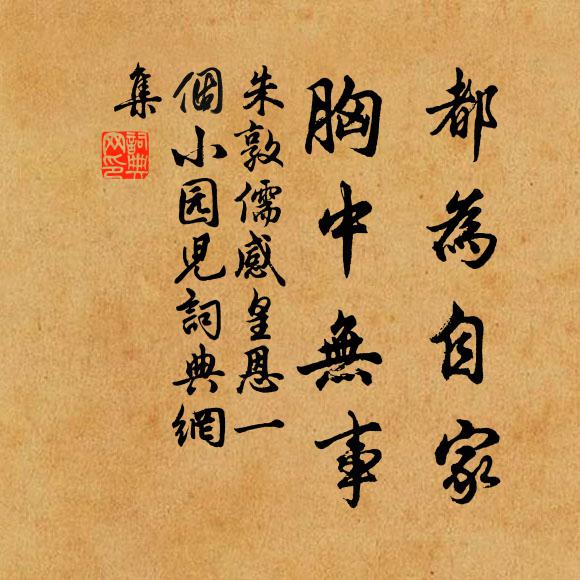 都為自家
胸中無事
朱敦儒感皇恩一
個小园児詞典網
集
詞典
网印